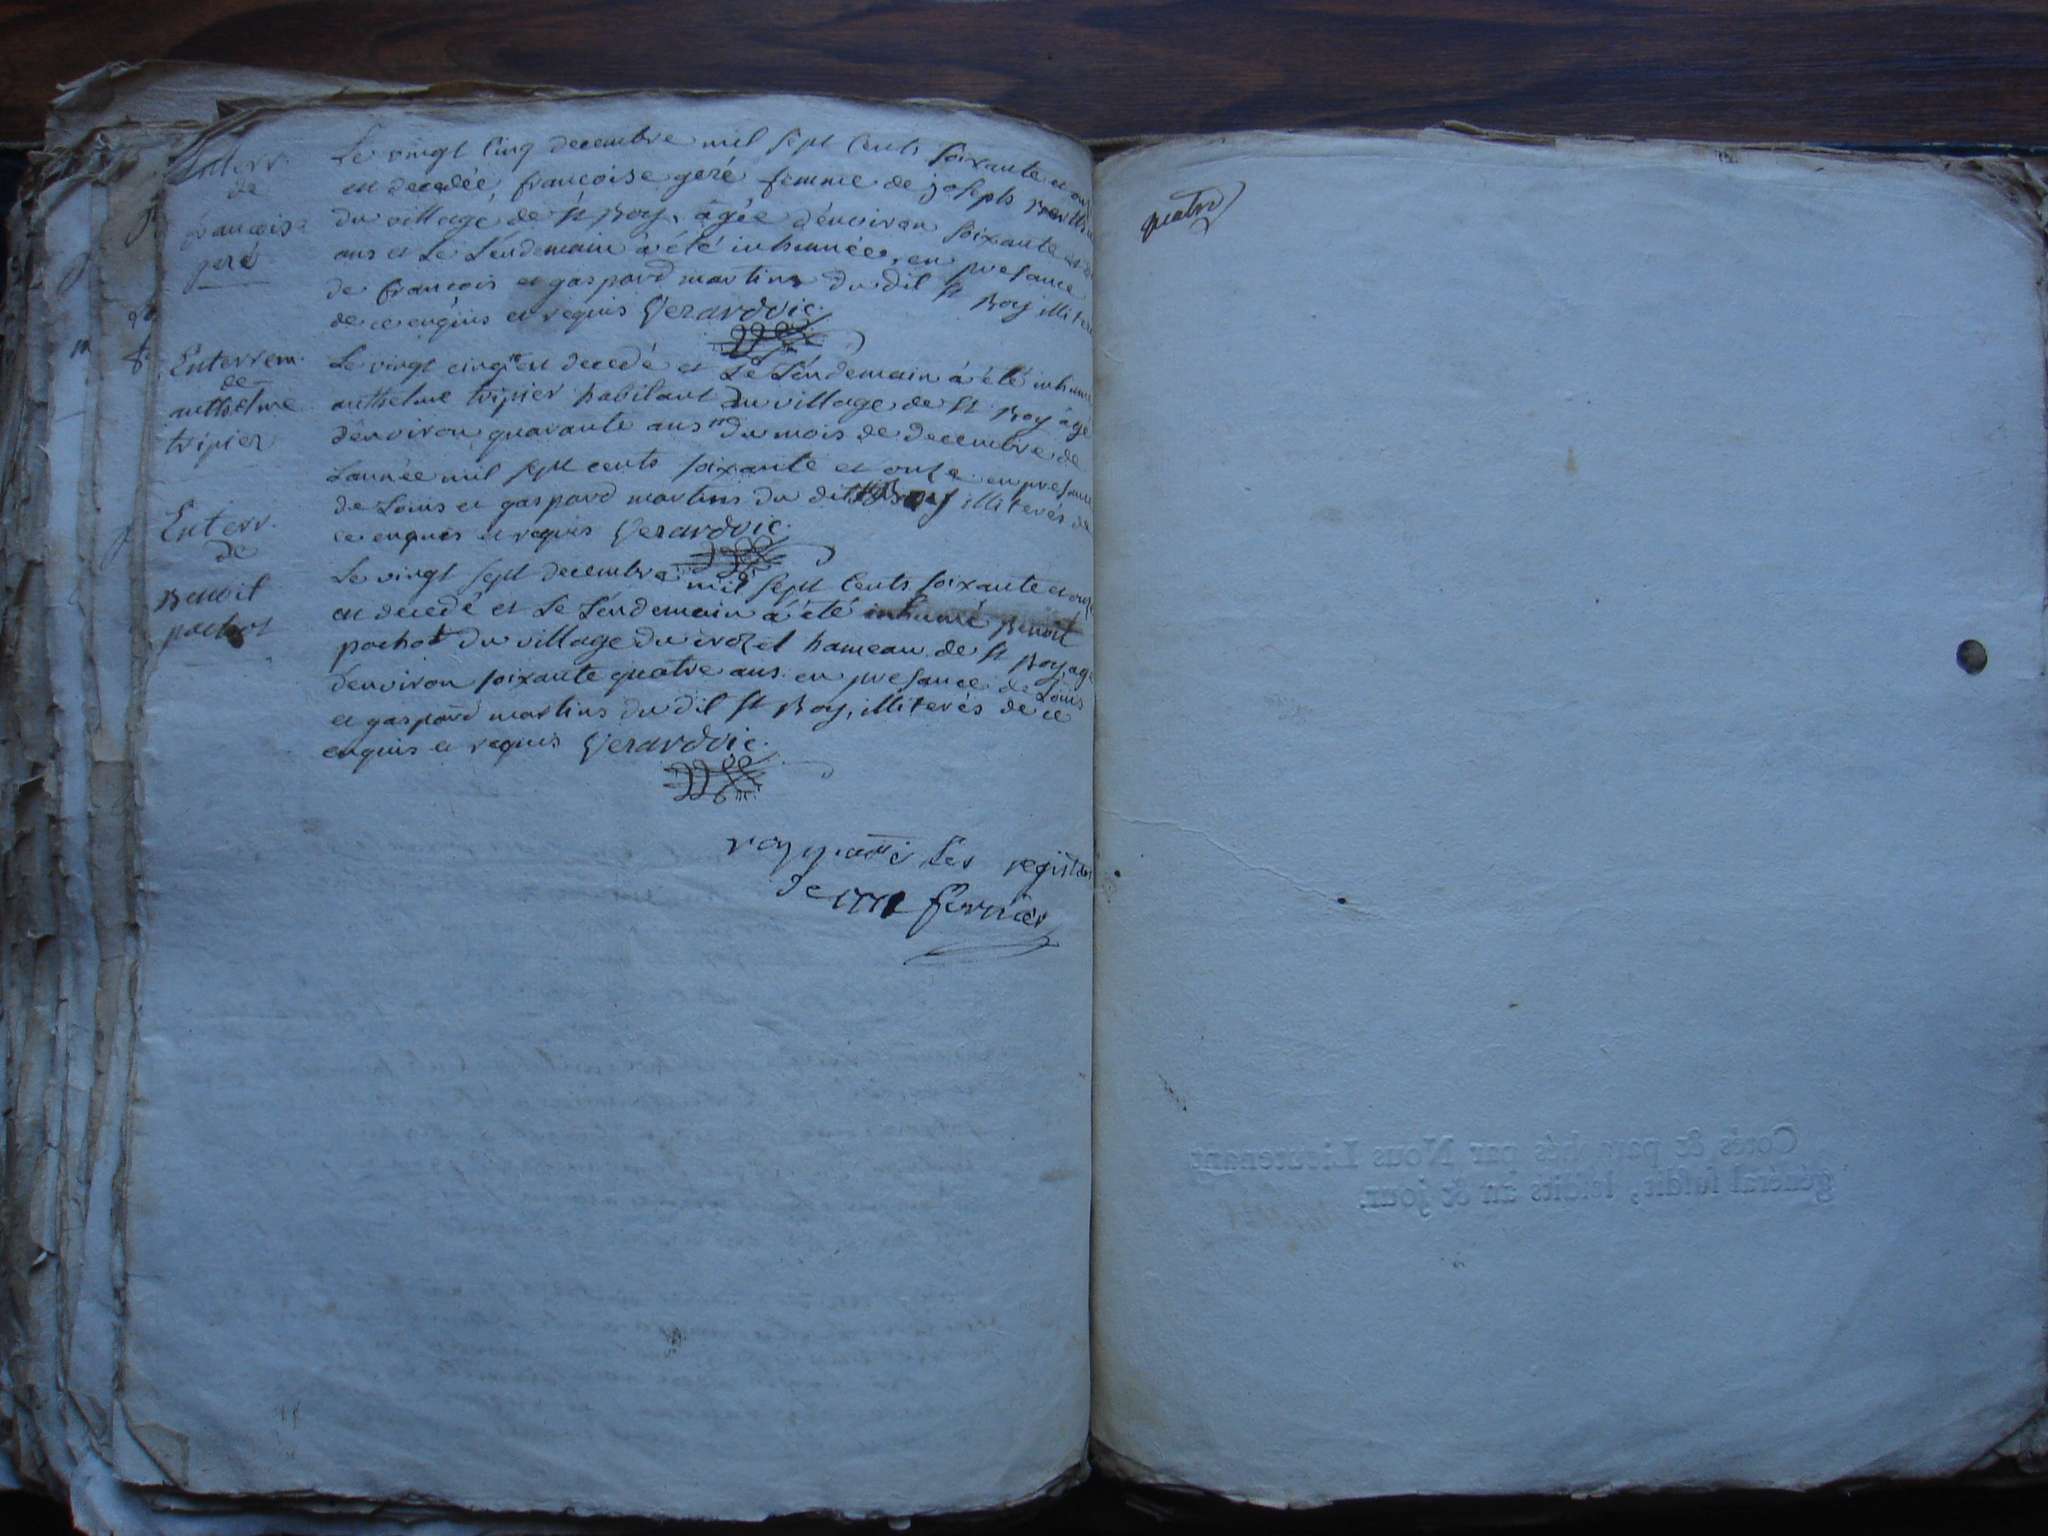 Enterr.
de
francoise
geré
Le vingt cinq decembre mil sept cents soixante et onze
est decedée francoise geré femme de joseph
du village de st Boy, âgée d'environ soixante et
ans et Le Lendemain à été inhumée, en presance
de francois et gaspard martins du dit st Boy illiterés
de ce enquis et requis Gerard vic.
Enterrem.
de
anthelme
tripier
Le vingt cinq est decedé et Le Lendemain à été inhumé
anthelme tripier habitant du village de st Boy âgé
d'environ quarante ans du mois de decembre de
L'année mil sept cents soixante et onze en presance
de Louis et gaspard martins du dit st Boy illiterés de
ce enquis et requis Gerard vic.
Enterr.
de
Benoit
pochot
Le vingt sept decembre mil sept cents soixante et onze
est decedé et Le Lendemain à été inhumé Benoit
pochot du village du crozet hameau de st Boy, agé
d'environ soixante quatre ans en presance de Louis
et gaspard martins du dit st Boy, illiterés de ce
enquis et requis Gerard vic.
Les registres
de 1771
quatre
Cotés & paraphés par Nous Lieutenant
général susdit, lesdits an & jour.